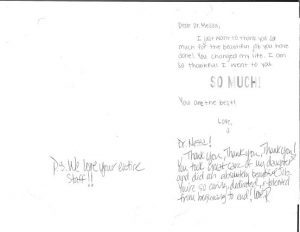 Dear Dr. Messa,
I just want to thank you so
much for the beautiful job you have
done! You changed my life. I am
so thankful I went to you
SO MUCH!
You are the best!
Love,
Dr. Messa!
Thank you, Thank you, Thank you!
You took great care of my daughter
and did an absolutely beautiful job.
You're so caring, dedicated, & talented
from beginning to end!
P.S. We love your entire
staff!!